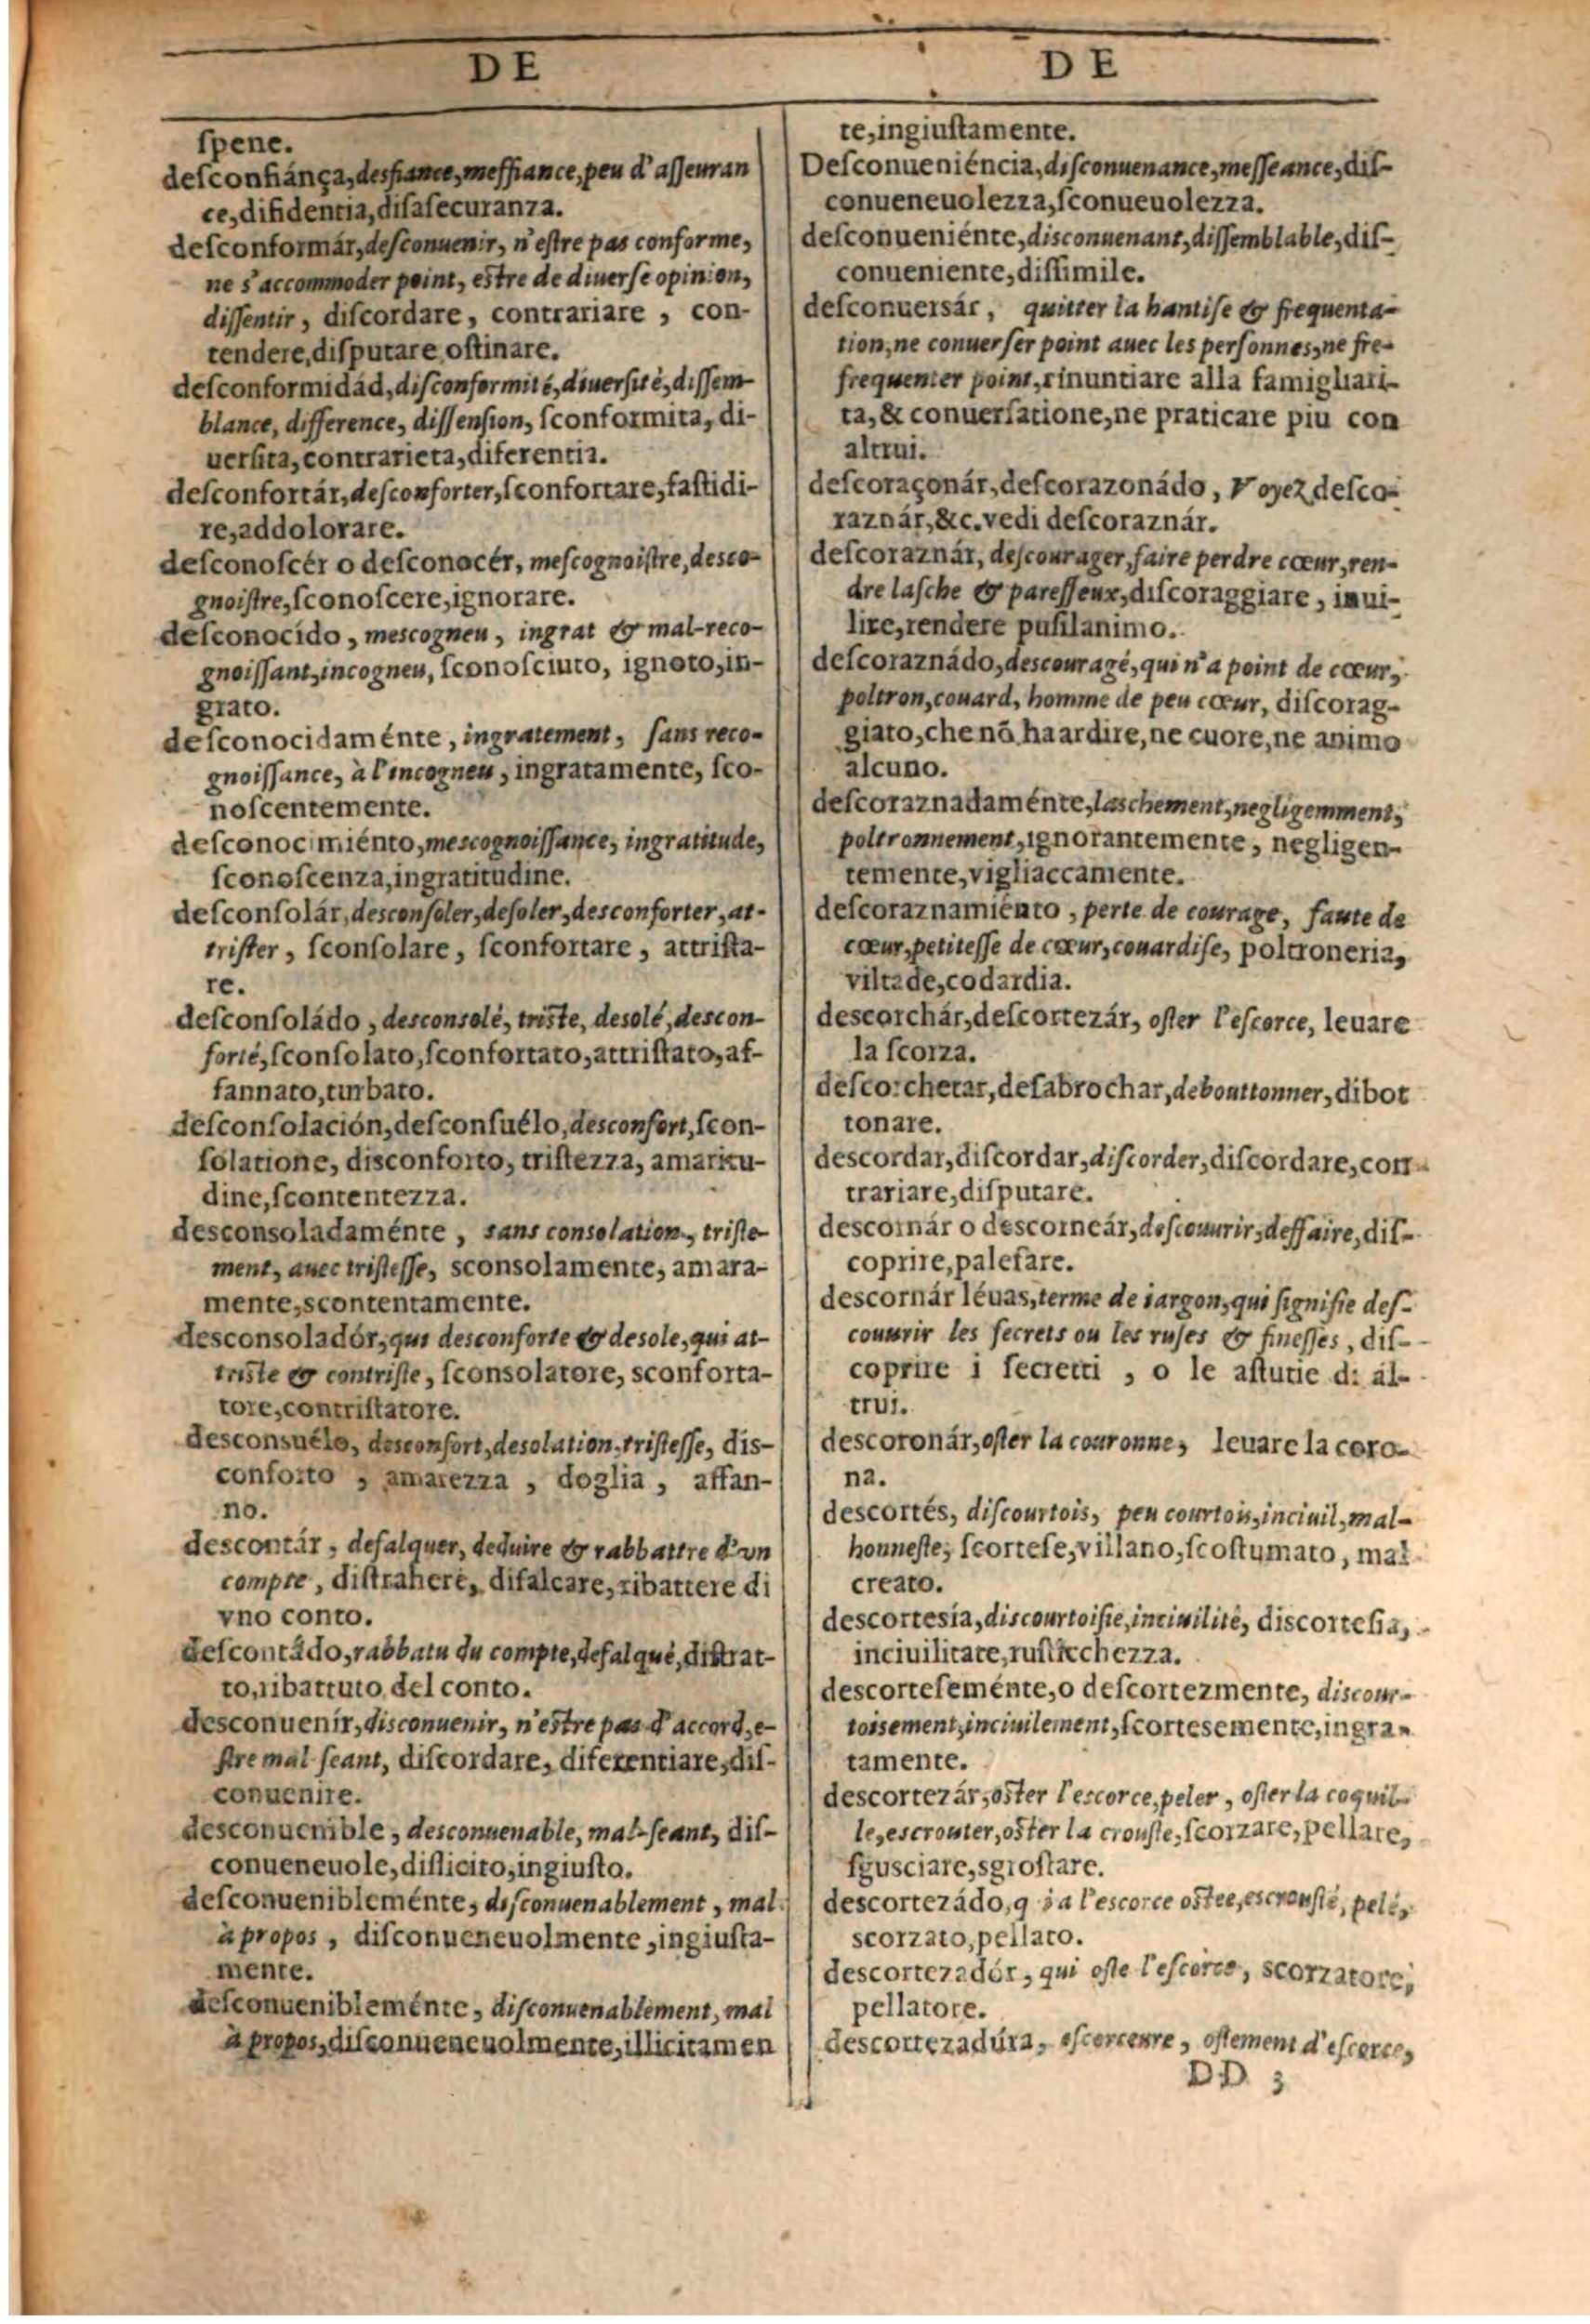 DE
ſpene.
deſconfiánça, desfiance, meffiance, peu d'aſſeuran
ce, difidentia, diſaſecuranza.
deſconformár, deſconuenir, n'eſtre pas conforme,
ne s'accommoder point, eſtre de diuerſe opinion,
diſſentir, diſcordare, contrariare, con-
tendere, diſputare oſtinare.
deſconformidád, diſconformité, diuerſité, diſſem-
blance, difference, diſſenſion, ſconformita, di-
uerſita, contrarieta, diferentia.
deſconfortár, deſconforter, ſconfortare, faſtidi-
re, addolorare.
deſconoſcér o deſconocér, meſcognoiſtre, desco-
gnoiſtre, ſconoſcere, ignorare.
deſconocído, mescogneu, ingrat & mal-reco-
gnoiſſant, incogneu, ſconoſciuto, ignoto, in-
grato.
deſconocidaménte, ingratement, ſans reco-
gnoiſſance, à l'incogneu, ingratamente, ſco-
noſcentemente.
deſconocimiénto, mescognoiſſance, ingratitude,
ſconoſcenza, ingratitudine.
deſconſolár, desconſoler, deſoler, desconforter, at-
triſter, ſconſolare, ſconfortare, attriſta-
re.
deſconſoládo, desconsolé, triſte, desolé, descon-
forté, ſconſolato, ſconfortato, attriſtato, af-
fannato, turbato.
deſconſolación, deſconſuélo, desconfort, ſcon-
ſolatione, disconforto, triſtezza, amaritu-
dine, ſcontentezza.
desconsoladaménte, sans consolation, triſte-
ment, auec triſteſſe, sconsolamente, amara-
mente, scontentamente.
desconsoladór, qui desconforte & desole, qui at-
triſte & contriſte, ſconsolatore, sconforta-
tore, contriſtatore.
desconsuélo, desconfort, desolation, triſteſſe, dis-
conforto, amarezza, doglia, affan-
no.
descontár, defalquer, deduire & rabbattre d'vn
compte, diſtrahere, difalcare, ribattere di
vno conto.
deſcontádo, rabbatu du compte, defalqué, diſtrat-
to, ribattuto del conto.
desconuenír, disconuenir, n'eſtre pas d'accord, e-
ſtre mal ſeant, diſcordare, diferentiare, diſ-
conuenire.
desconuenible, desconuenable, mal-ſeant, diſ-
conueneuole, diſlicito, ingiuſto.
deſconuenibleménte, diſconuenablement, mal
à propos, diſconueneuolmente, ingiuſta-
mente.
deſconuenibleménte, diſconuenablement, mal
à propos, diſconueneuolmente, illicitamen
DE
te, ingiuſtamente.
Deſconueniéncia, diſconuenance, meſſeance, diſ-
conueneuolezza, ſconueuolezza.
deſconueniénte, disconuenant, diſſemblable, diſ-
conueniente, diſſimile.
deſconuersár, quitter la hantiſe & frequenta-
tion, ne conuerſer point auec les perſonnes, ne fre-
frequenter point, rinuntiare alla famigliari-
ta, & conuerſatione, ne praticare piu con
altrui.
deſcoraçonár, deſcorazonádo, Voyez deſco-
raznár, &c. vedi deſcoraznár.
deſcoraznár, deſcourager, faire perdre cœur, ren-
dre laſche & pareſſeux, diſcoraggiare, inui-
lire, rendere puſilanimo.
deſcoraznádo, descouragé, qui n'a point de cœur,
poltron, couard, homme de peu cœur, diſcorag-
giato, che nõ ha ardire, ne cuore, ne animo
alcuno.
deſcoraznadaménte, laschement, negligemment,
poltronnement, ignorantemente, negligen-
temente, vigliaccamente.
deſcoraznamiénto, perte de courage, faute de
cœur, petiteſſe de cœur, couardiſe, poltroneria,
viltade, codardia.
descorchár, deſcortezár, oſter l'eſcorce, leuare
la ſcorza.
deſcorchetar, deſabrochar, debouttonner, dibot
tonare.
descordar, diſcordar, diſcorder, diſcordare, con-
trariare, diſputare.
descornár o descorneár, deſcouurir, deffaire, diſ-
coprire, paleſare.
descornár léuas, terme de iargon, qui ſignifie deſ-
couurir les ſecrets ou les ruſes & fineſſes, diſ-
coprire i ſecretti, o le aſtutie di al-
trui.
descoronár, oſter la couronne, leuare la coro-
na.
descortés, diſcourtois, peu courtois, inciuil, mal-
honneſte, ſcorteſe, villano, ſcoſtumato, mal
creato.
descortesía, discourtoiſie, inciuilité, discorteſia,
inciuilitate, ruſticchezza.
descorteſeménte, o deſcortezmente, discour-
toisement, inciuilement, ſcortesemente, ingra-
tamente.
descortezár, oſter l'escorce, peler, oſter la coquil-
le, escrouter, oſter la crouſte, ſcorzare, pellare,
ſgusciare, sgroſtare.
descortezádo, q i a l'escorce oſtee, escrouſté, pelé,
scorzato, pellato.
descortezadór, qui oſte l'eſcorce, scorzatore,
pellatore.
descortezadúra, eſcorceure, oſtement d'eſcorce,
DD 3